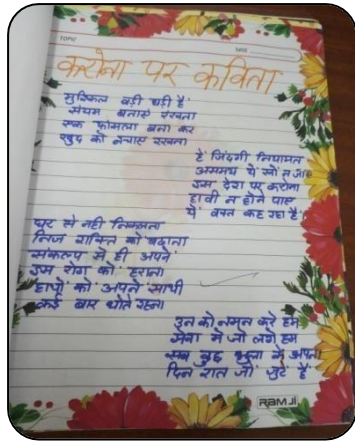 TOPIC
DATE
करोना पर कविता
मुश्किल बड़ी घड़ी है
संयम बनाये रखना
एक फासला बना कर
खुद को बचाए रखना
है जिंदगी नियामत
असमय ये खो न जाए
इस देश पर करोना
हावी न होने पाए
ये वक्त कह रहा है
घर से नही निकलना
निज शक्ति को बढ़ाना
संकल्प से ही अपने
इस रोग को हराना
हाथों को अपने साथी
कई बार धोते रहना
उन को नमन करे हम
सेवा मे जो लगे हम
सब कुछ भुला के अपना
दिन रात जो जुटे हैं
RAMJI